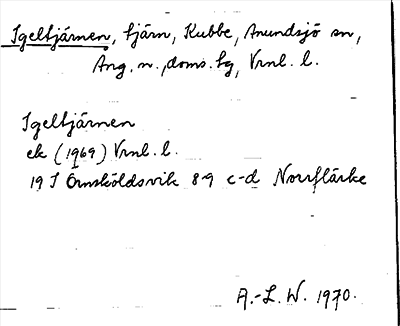 Igeltjärnen, tjärn, Kubbe, Anundsjö sn,
Ång. n., doms. bg, Vrnl. l.
Igeltjärnen
ek (1969) Vrnl. l.
19 I Örnsköldsvik 8-9 c-d Norrflärke
A.-L. W. 1970.